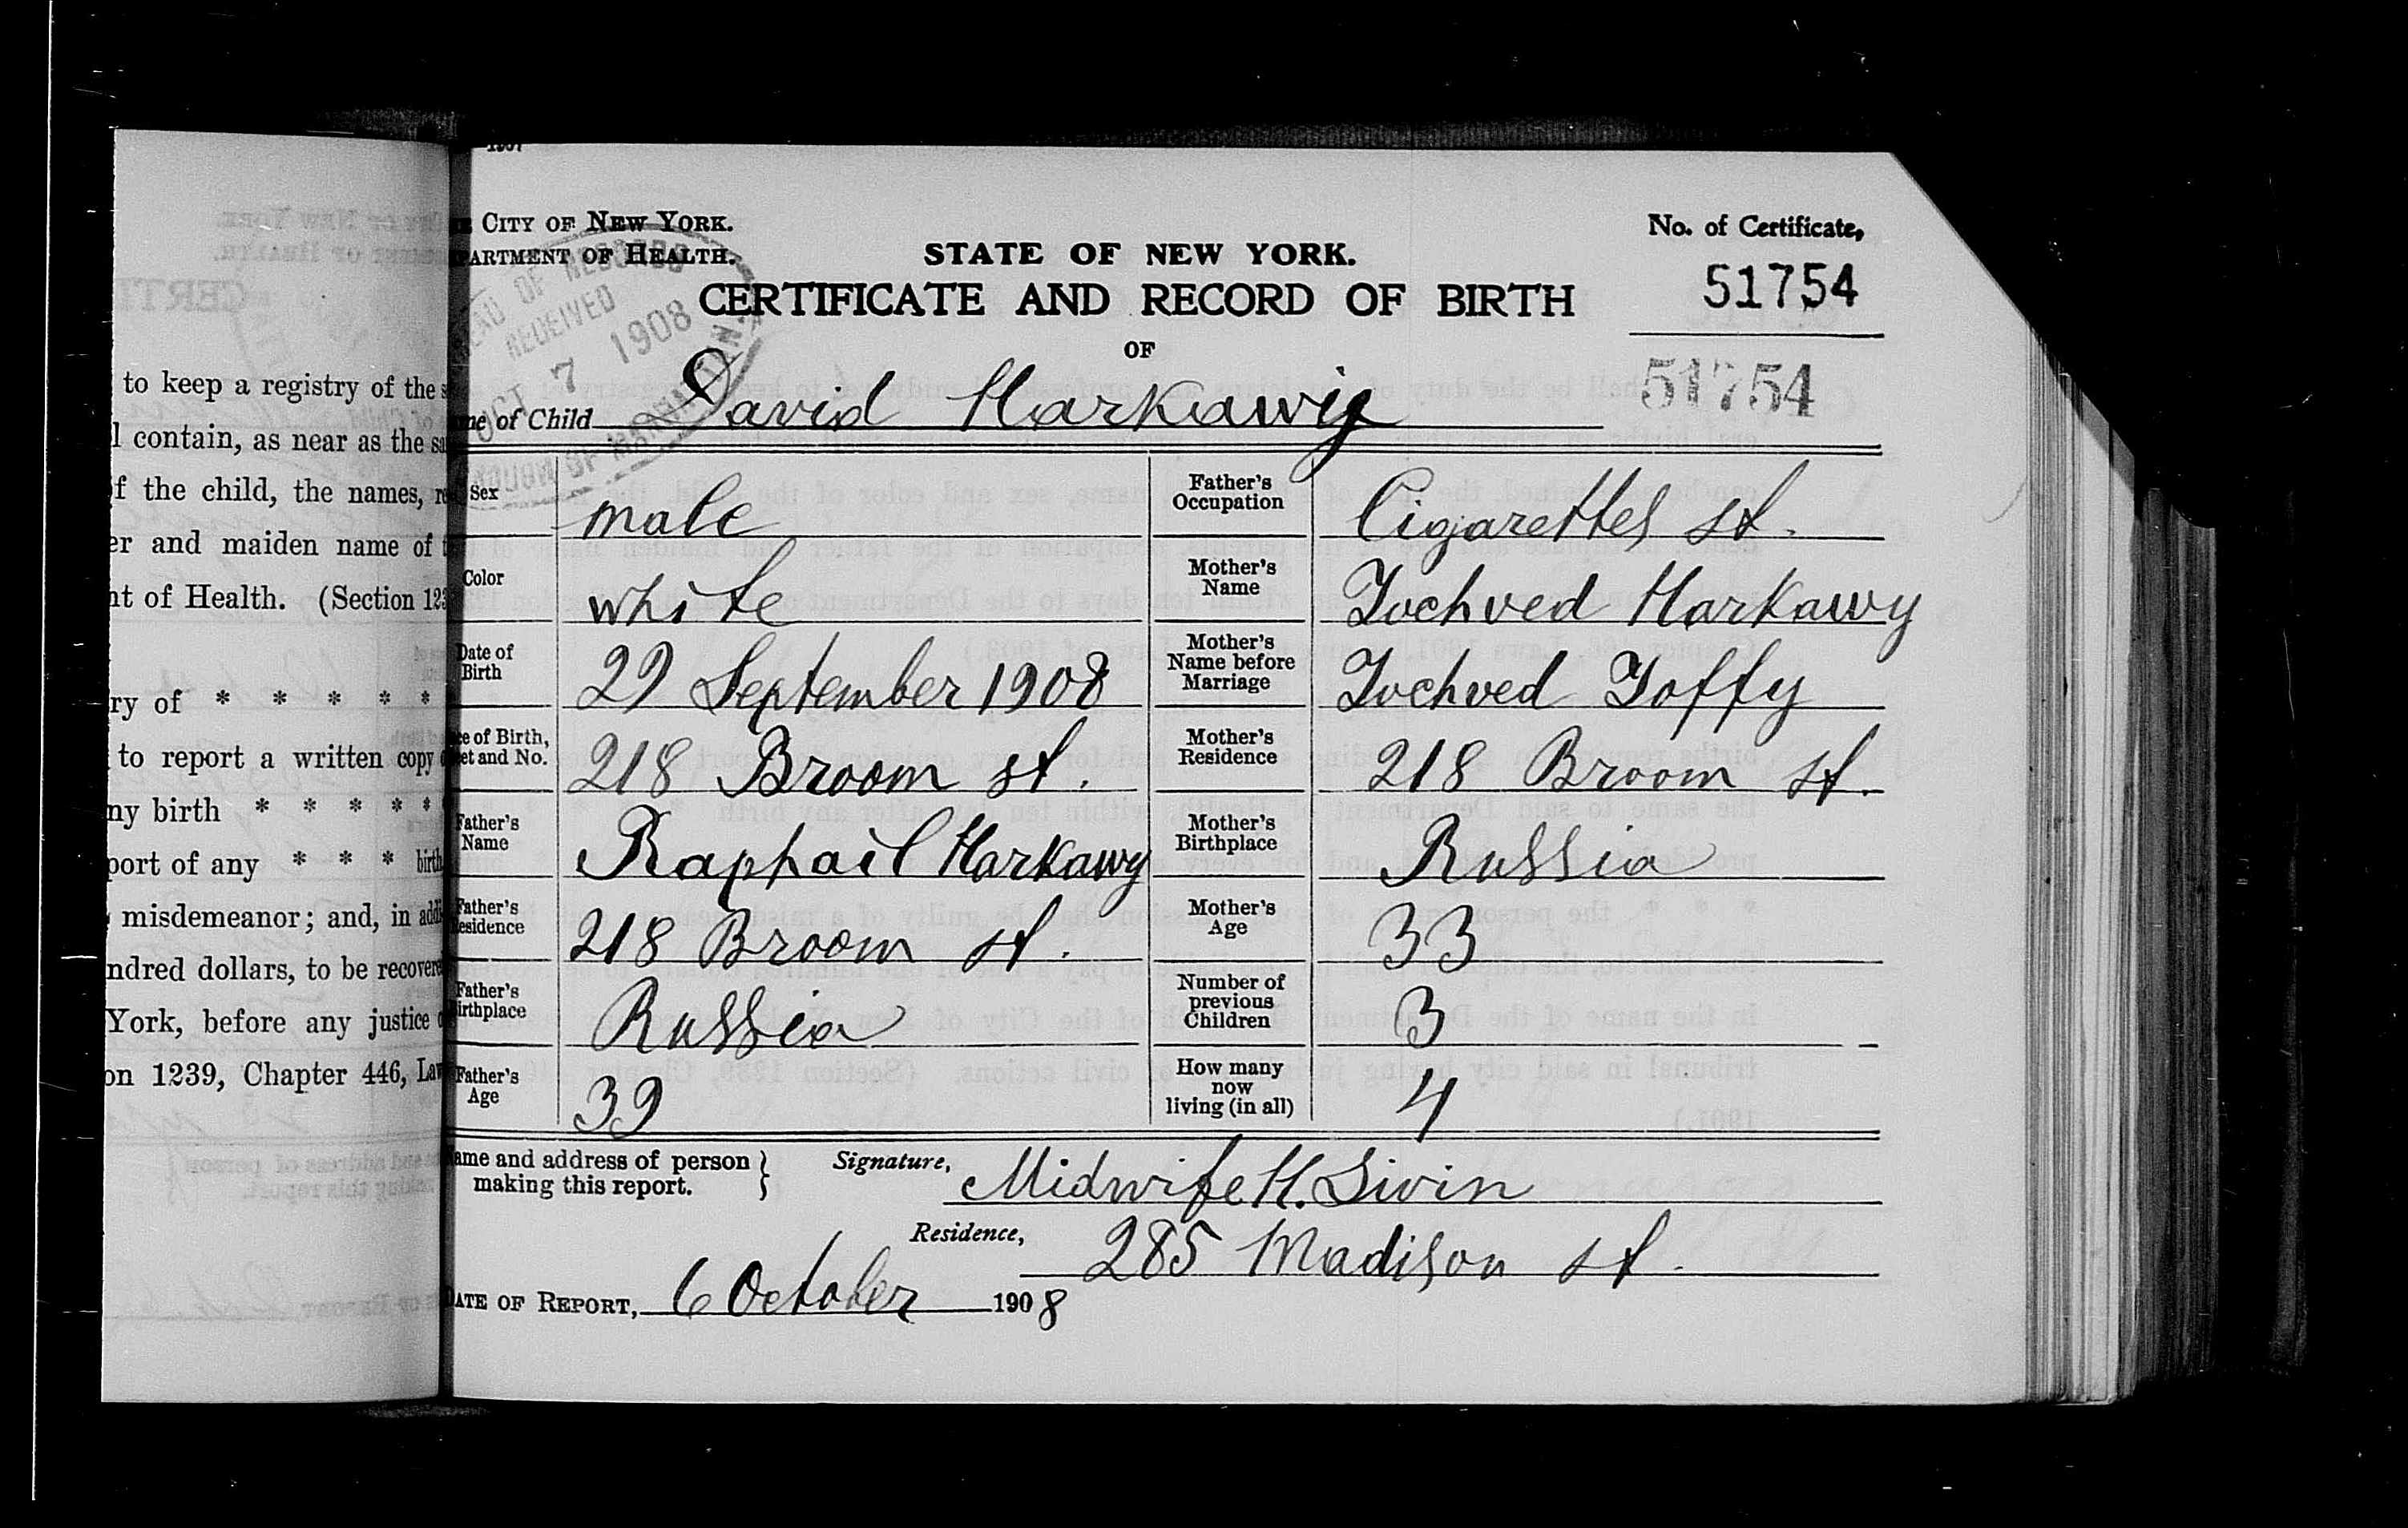 to keep a registry of the
contain, as near as the
of the child, the names,
and maiden name of
of Health. (Section
ry of * * * * *
to report a written copy
ny birth * * * * *
port of any * * * birth
misdemeanor; and, in
ndred dollars, to be
York, before any justice
on 1239, Chapter 446,
1907
CITY OF NEW YORK.
PARTMENT OF HEALTH.
STATE OF NEW YORK.
No. of Certificate,
51754
CERTIFICATE AND RECORD OF BIRTH
OF
51754
OF RECORDS
RECEIVED
OCT 7 1908
OF MANHATTAN.
me of Child David Harkawy
Sex male
Father's Occupation Cigarettes st.
Color white
Mother's Name Jochved Harkawy
Date of Birth 29 September 1908
Mother's Name before Marriage Jochved Joffy
ce of Birth, et and No. 218 Broom st.
Mother's Residence 218 Broom st.
Father's Name Raphail Harkawy
Mother's Birthplace Russia
Father's Residence 218 Broom st.
Mother's Age 33
Father's Birthplace Russia
Number of previous Children 3
Father's Age 39
How many now living (in all) 4
ame and address of person making this report.
Signature, Midwife H. Sivin
Residence, 285 Madison st.
DATE OF REPORT, 6 October 1908